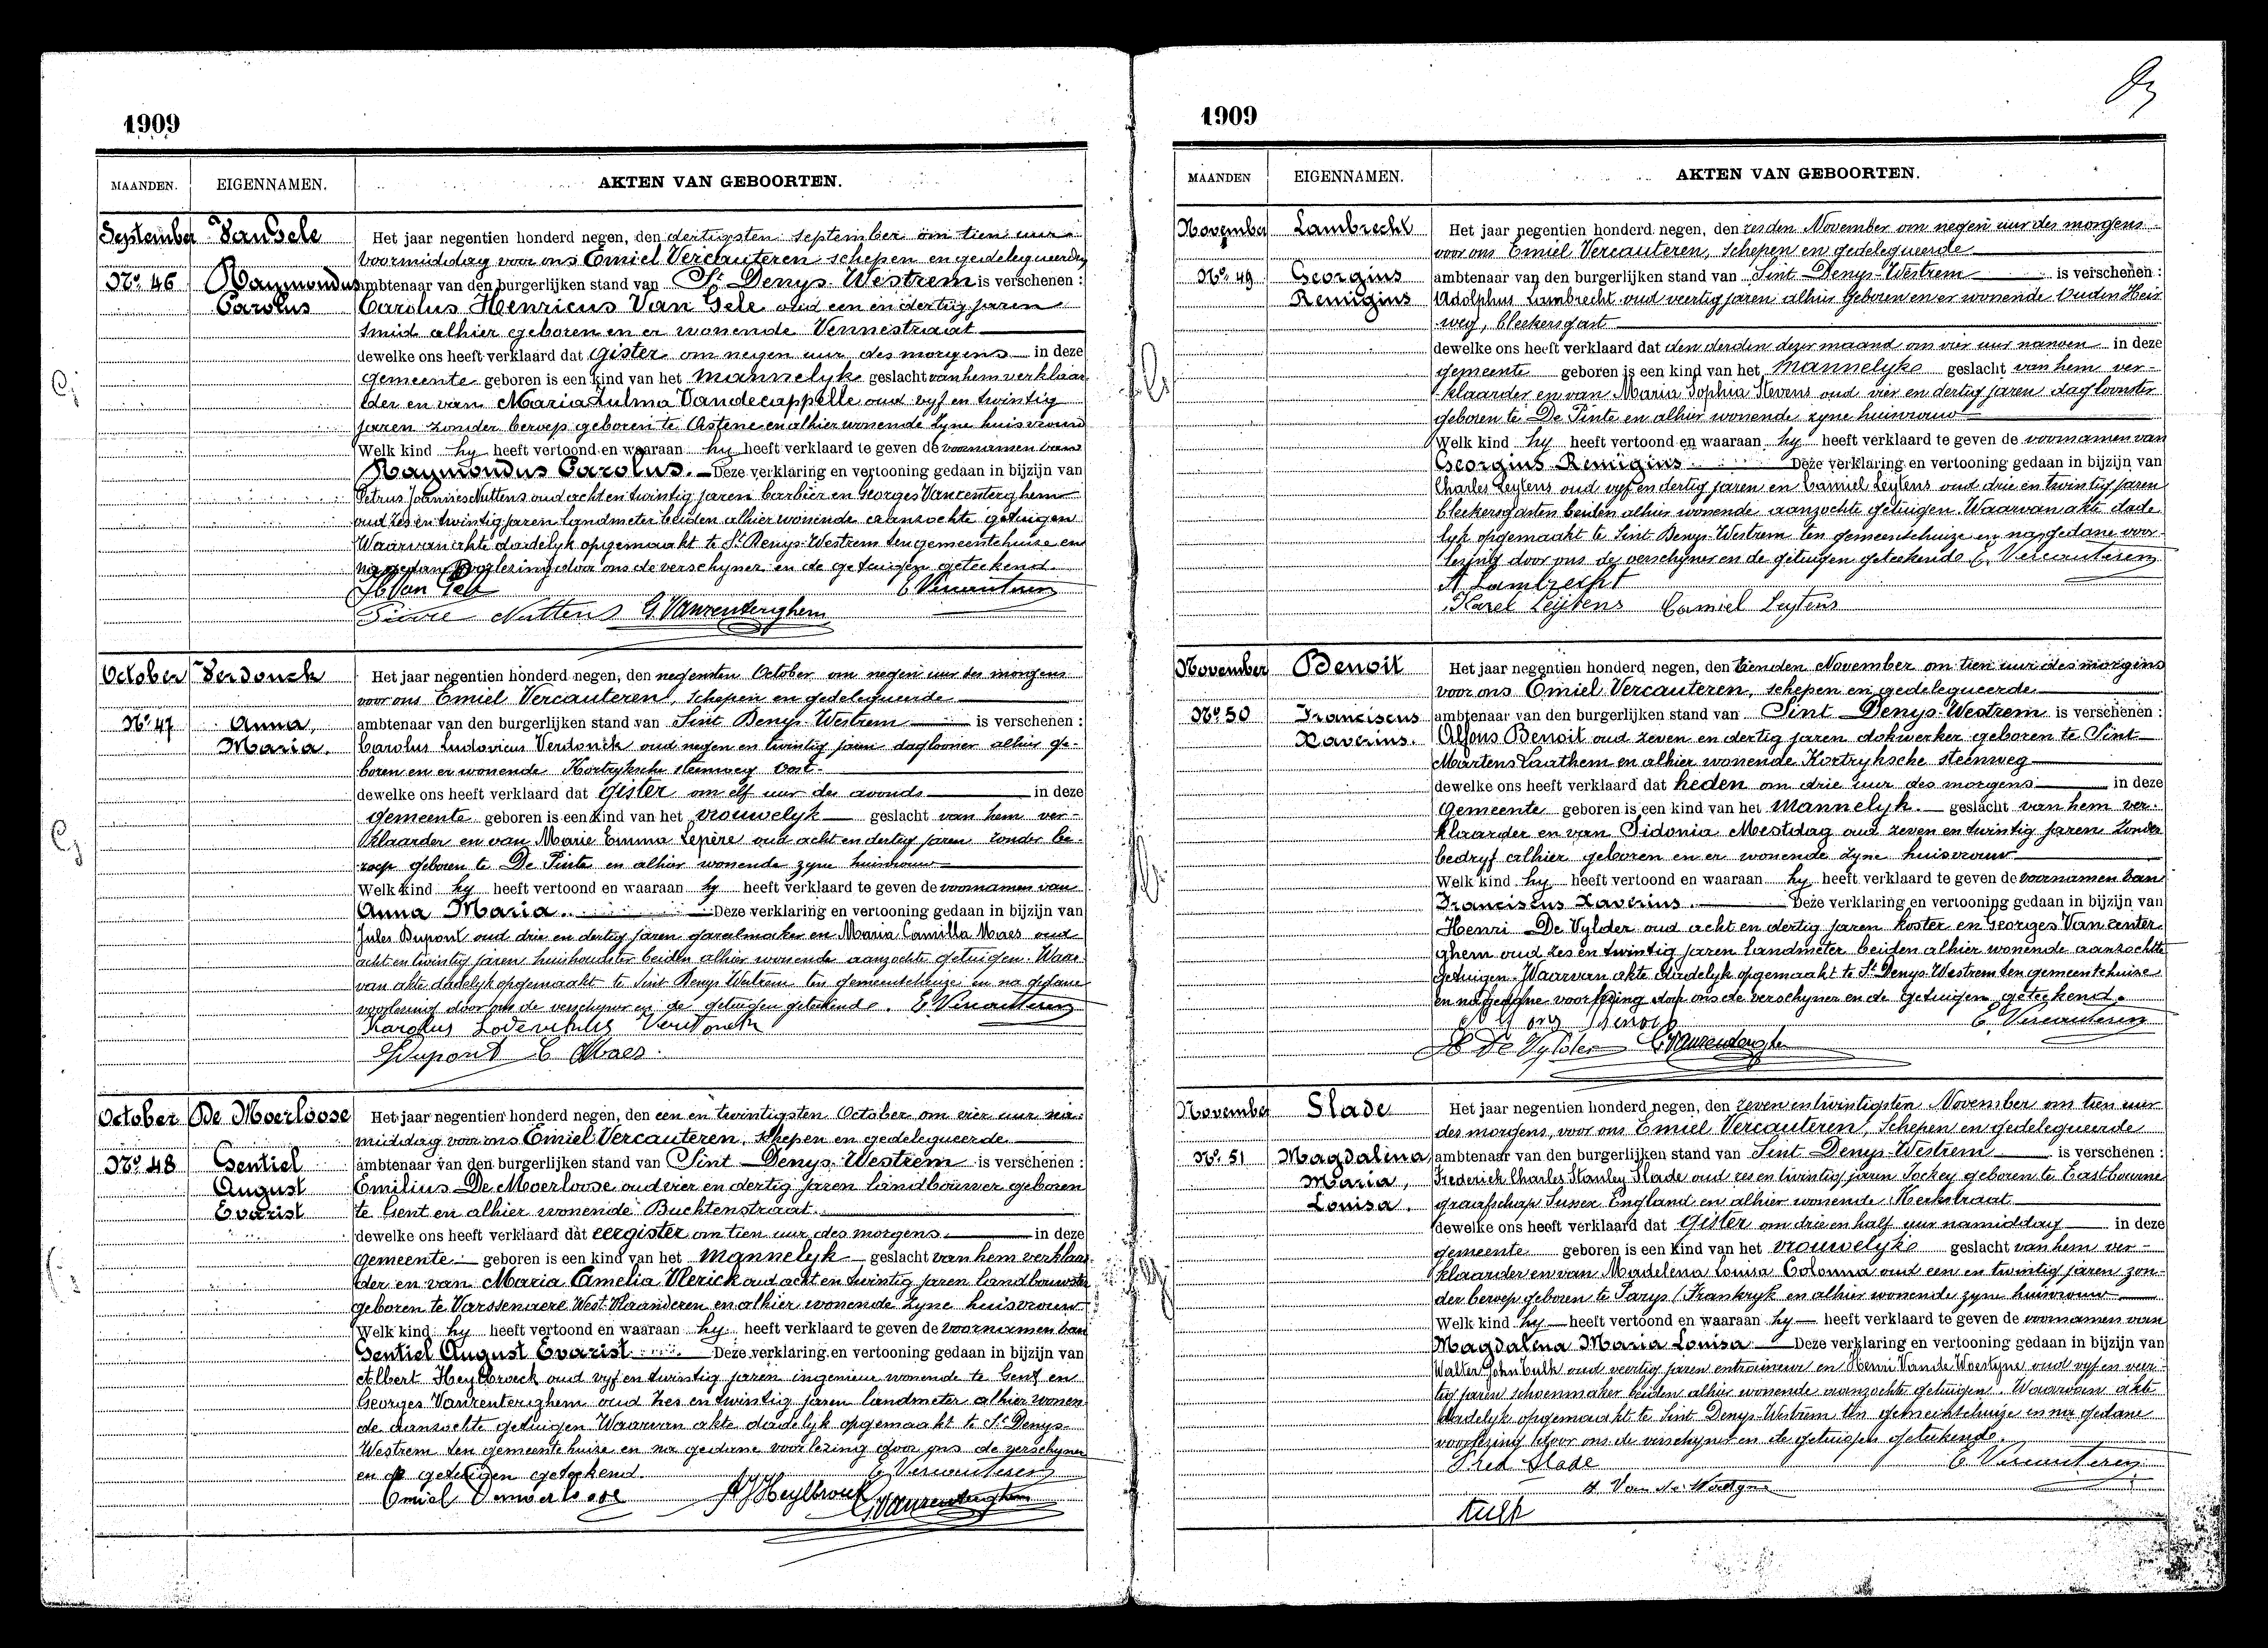 1909
MAANDEN. EIGENNAMEN. AKTEN VAN GEBOORTEN.
September Van Gele Het jaar negentien honderd negen, den dertigsten september om tien uur
voormiddag voor ons Emiel Vercauteren schepen en gedelegueerden
No. 46 Raymondus ambtenaar van den burgerlijken stand van St Denys-Westrem is verschenen :
Carolus Carolus Henricus Van Gele oud een en dertig jaren
smid alhier geboren en er wonende Vennestraat
dewelke ons heeft verklaard dat gister om negen uur des morgens in deze
gemeente geboren is een kind van het mannelyk geslacht van hem verklaar
der en van Maria Zulma Vandecappelle oud vyf en twintig
jaren zonder beroep geboren te Astene en alhier wonende zyne huisvrouw
Welk kind hy heeft vertoond en waaraan hy heeft verklaard te geven de voornamen van
Raymondus Carolus. Deze verklaring en vertooning gedaan in bijzijn van
Petrus Joannes Nuttens oud acht en twintig jaren barbier en Georges Vanrenterghem
oud zes en twintig jaren landmeter beiden alhier wonende aanzochte getuigen
Waarvan akte dadelyk opgemaakt te St Denys-Westrem ten gemeentehuize en
na gedane voorlezing door ons de verschyner en de getuigen geteekend.
Van Gele E. Vercauteren
Pierre Nuttens G. Vanrenterghem
October Verdonck Het jaar negentien honderd negen, den negensten October om negen uur des morgens
voor ons Emiel Vercauteren, schepen en gedelegueerde
No. 47 Anna, ambtenaar van den burgerlijken stand van Sint Denys-Westrem is verschenen :
Maria. Carolus Ludovicus Verdonck oud negen en twintig jaren daglooner alhier ge-
boren en er wonende Kortryksche steenweg Oost.
dewelke ons heeft verklaard dat gister om elf uur des avonds in deze
gemeente geboren is een kind van het vrouwelyk geslacht van hem ver-
klaarder en van Marie Emma Lepère oud acht en dertig jaren zonder be-
roep geboren te De Pinte en alhier wonende zyne huisvrouw
Welk kind hy heeft vertoond en waaraan hy heeft verklaard te geven de voornamen van
Anna Maria. Deze verklaring en vertooning gedaan in bijzijn van
Jules Dupont oud drie en dertig jaren gareelmaker en Maria Camilla Maes oud
acht en twintig jaren huishoudster beiden alhier wonende aanzochte getuigen. Waar-
van akte dadelyk opgemaakt te Sint Denys Westrem ten gemeentehuize en na gedane
voorlezing door ons de verschyner en de getuigen geteekende. E. Vercauteren
Karolus Verdonck
Dupont C Maes.
October De Moerloose Het jaar negentien honderd negen, den een en twintigsten October om vier uur na-
middag voor ons Emiel Vercauteren, schepen en gedelegueerde
No. 48 Gentiel ambtenaar van den burgerlijken stand van Sint Denys-Westrem is verschenen :
August Emilius De Moerloose oud vier en dertig jaren landbouwer geboren
Evarist te Gent en alhier wonende Buchtenstraat.
dewelke ons heeft verklaard dat eergister om tien uur des morgens. in deze
gemeente geboren is een kind van het mannelyk geslacht van hem verklaar-
der en van Maria Camelia Vlerick oud acht en twintig jaren landbouwster
geboren te Varssenaere West-Vlaanderen en alhier wonende zyne huisvrouw
Welk kind hy heeft vertoond en waaraan hy heeft verklaard te geven de voornamen van
Gentiel August Evarist. Deze verklaring en vertooning gedaan in bijzijn van
Albert Heylbroeck oud vyf en twintig jaren ingenieur wonende te Gent en
Georges Vanrenterghem oud zes en twintig jaren landmeter alhier wonen
de aanzochte getuigen Waarvan akte dadelyk opgemaakt te St Denys-
Westrem ten gemeentehuize en na gedane voorlezing door ons de verschyner
en de getuigen geteekend. E. Vercauteren
Emiel Demoerloose Heylbroeck G. Vanrenterghem
1909
MAANDEN EIGENNAMEN. AKTEN VAN GEBOORTEN.
November Lambrecht Het jaar negentien honderd negen, den zesden November om negen uur des morgens
voor ons Emiel Vercauteren, schepen en gedelegueerde
No. 49 Georgius ambtenaar van den burgerlijken stand van Sint Denys-Westrem is verschenen :
Remigius Adolphus Lambrecht oud veertig jaren alhier geboren en er wonende Ouden Heir
weg, bleekersgast
dewelke ons heeft verklaard dat den derden dezer maand om vier uur nanoen in deze
gemeente geboren is een kind van het mannelyke geslacht van hem ver-
klaarder en van Maria Sophia Stevens oud vier en dertig jaren dagloonster
geboren te De Pinte en alhier wonende zyne huisvrouw
Welk kind hy heeft vertoond en waaraan hy heeft verklaard te geven de voornamen van
Georgius Remigius Deze verklaring en vertooning gedaan in bijzijn van
Charles Leytens oud vyf en dertig jaren en Camiel Leytens oud drie en twintig jaren
bleekersgasten beiden alhier wonende aanzochte getuigen. Waarvan akte dade-
lyk opgemaakt te Sint Denys-Westrem ten gemeentehuize en na gedane voor-
lezing door ons de verschyner en de getuigen geteekende E. Vercauteren
A Lambrecht
Karel Leijtens Camiel Leytens
November Benoit Het jaar negentien honderd negen, den tienden November om tien uur des morgens
voor ons Emiel Vercauteren, schepen en gedelegueerde
No. 50 Franciscus ambtenaar van den burgerlijken stand van Sint Denys-Westrem is verschenen :
Xaverius. Alfons Benoit oud zeven en dertig jaren dokwerker geboren te Sint
Martens Laathem en alhier wonende Kortryksche steenweg
dewelke ons heeft verklaard dat heden om drie uur des morgens in deze
gemeente geboren is een kind van het mannelyk. geslacht van hem ver-
klaarder en van Sidonia Mestdag oud zeven en twintig jaren zonder
bedryf alhier geboren en er wonende zyne huisvrouw
Welk kind hy heeft vertoond en waaraan hy heeft verklaard te geven de voornamen van
Franciscus Xaverius. Deze verklaring en vertooning gedaan in bijzijn van
Henri De Vylder oud acht en dertig jaren koster en Georges Vanrenter-
ghem oud zes en twintig jaren landmeter beiden alhier wonende aanzochte
getuigen. Waarvan akte dadelyk opgemaakt te St Denys-Westrem ten gemeentehuize
en na gedane voorlezing door ons de verschyner en de getuigen geteekend.
Alfons Benoit E. Vercauteren
H De Vylder G. Vanrenterghem
November Slade Het jaar negentien honderd negen, den zeven en twintigsten November om tien uur
des morgens, voor ons Emiel Vercauteren, Schepen en gedelegueerde
No. 51 Magdalena, ambtenaar van den burgerlijken stand van Sint Denys-Westrem is verschenen :
Maria, Frederick Charles Stanley Slade oud zes en twintig jaren Jockey geboren te Eastbourne
Louisa. graafschap Sussex England en alhier wonende Kerkstraat
dewelke ons heeft verklaard dat gister om drie en half uur namiddag in deze
gemeente geboren is een kind van het vrouwelyke geslacht van hem ver-
klaarder en van Madelena Louisa Colonna oud een en twintig jaren zon-
der beroep geboren te Parys (Frankryk en alhier wonende zyne huisvrouw
Welk kind hy heeft vertoond en waaraan hy heeft verklaard te geven de voornamen van
Magdalena Maria Louisa Deze verklaring en vertooning gedaan in bijzijn van
Walter John Culk oud veertig jaren entraineur en Henri Vande Woestyne oud vyf en veer-
tig jaren schoenmaker beiden alhier wonende aanzochte getuigen. Waarvan akte
dadelyk opgemaakt te Sint Denys-Westrem ten gemeentehuize en na gedane
voorlezing door ons de verschyner en de getuigen geteekende.
Fred Slade E. Vercauteren
H Van de Woestyne